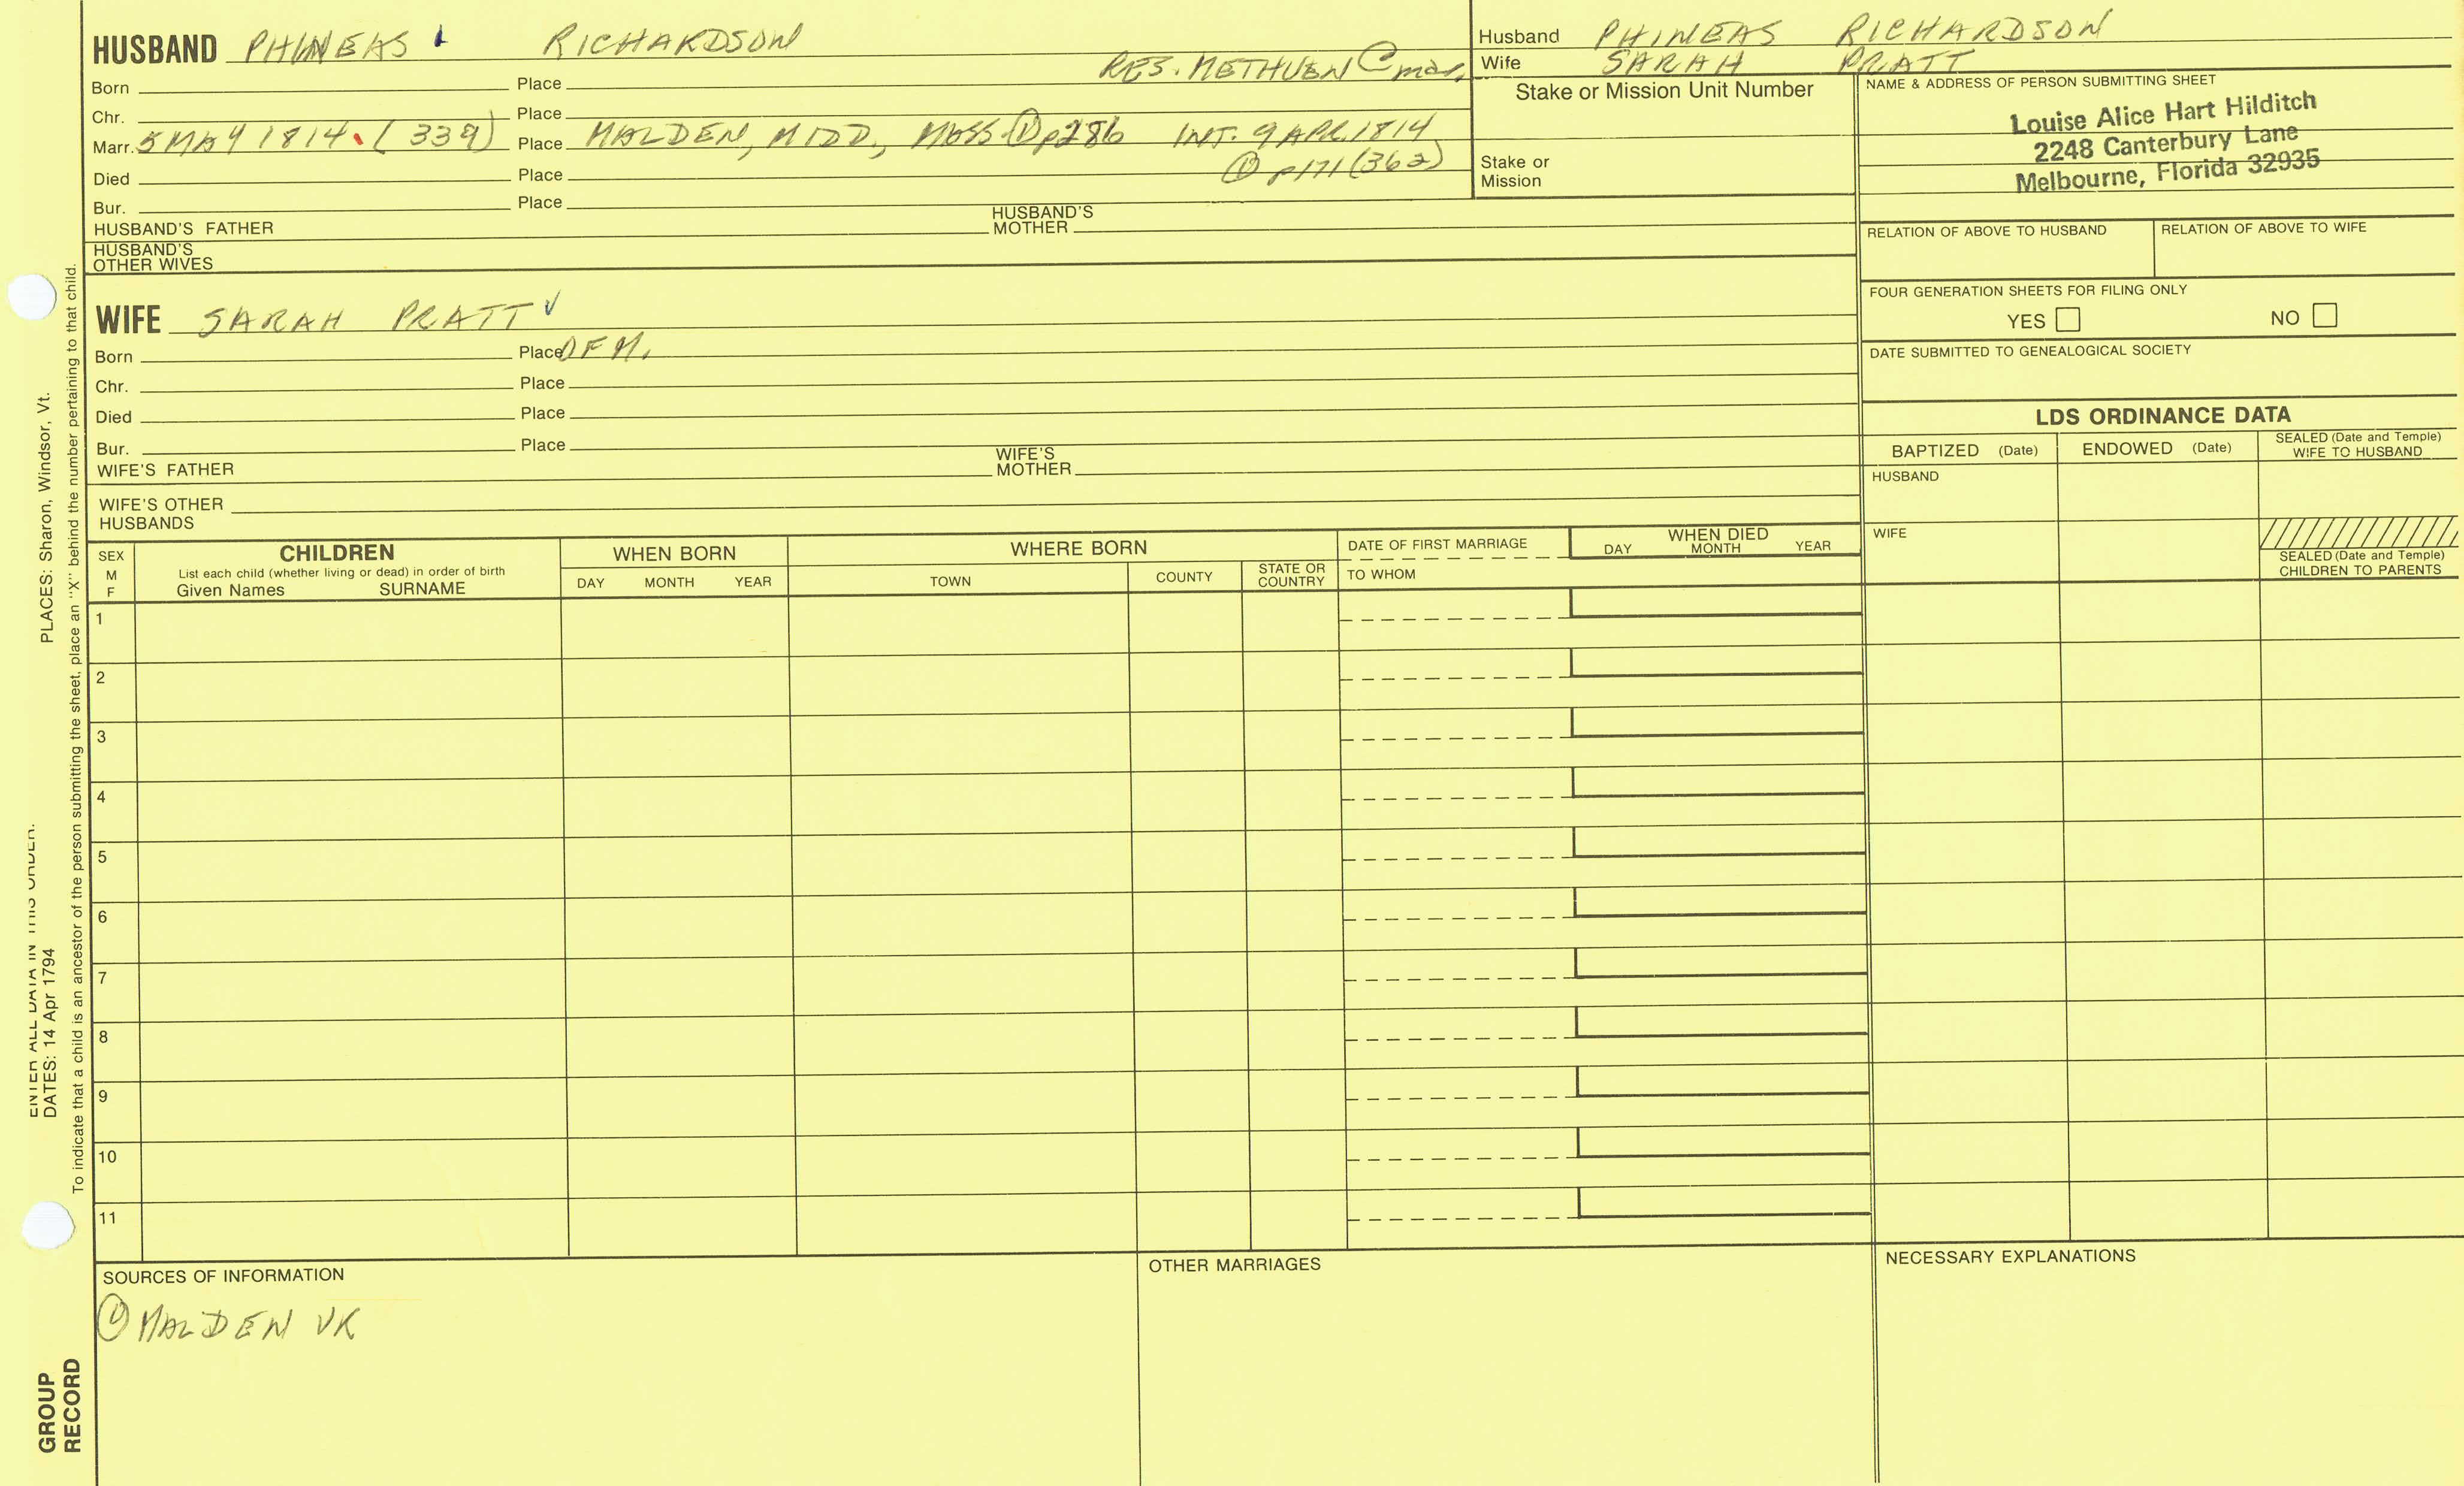 HUSBAND PHINEAS RICHARDSON
RES. METHUEN @ mar.
Born Place
Chr. Place
Marr. 5 MAY 1814. (339) Place MALDEN, MIDD., MASS ① p286 INT. 9 APR 1814
① p171 (362)
Died Place
Bur. Place
HUSBAND'S FATHER HUSBAND'S MOTHER
HUSBAND'S
OTHER WIVES
Husband PHINEAS RICHARDSON
Wife SARAH PRATT
Stake or Mission Unit Number
Stake or
Mission
NAME & ADDRESS OF PERSON SUBMITTING SHEET
Louise Alice Hart Hilditch
2248 Canterbury Lane
Melbourne, Florida 32935
RELATION OF ABOVE TO HUSBAND RELATION OF ABOVE TO WIFE
FOUR GENERATION SHEETS FOR FILING ONLY
YES NO
DATE SUBMITTED TO GENEALOGICAL SOCIETY
WIFE SARAH PRATT √
Born Place OFM.
Chr. Place
Died Place
Bur. Place
WIFE'S FATHER WIFE'S MOTHER
WIFE'S OTHER
HUSBANDS
LDS ORDINANCE DATA
BAPTIZED (Date) ENDOWED (Date) SEALED (Date and Temple) WIFE TO HUSBAND
HUSBAND
WIFE
SEALED (Date and Temple)
CHILDREN TO PARENTS
SEX
M
F
CHILDREN
List each child (whether living or dead) in order of birth
Given Names SURNAME
WHEN BORN
DAY MONTH YEAR
WHERE BORN
TOWN COUNTY STATE OR COUNTRY
DATE OF FIRST MARRIAGE
TO WHOM
WHEN DIED
DAY MONTH YEAR
1
2
3
4
5
6
7
8
9
10
11
SOURCES OF INFORMATION
① MALDEN VR
OTHER MARRIAGES
NECESSARY EXPLANATIONS
ENTER ALL DATA IN THIS ORDER:
DATES: 14 Apr 1794 PLACES: Sharon, Windsor, Vt.
To indicate that a child is an ancestor of the person submitting the sheet, place an "X" behind the number pertaining to that child.
GROUP
RECORD